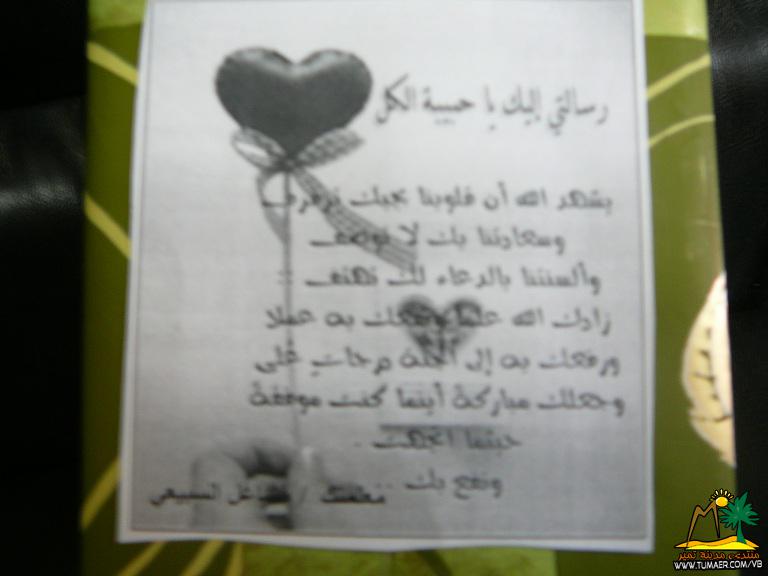 رسالتي إليك يا حبيبة الكل
يشهد الله أن قلوبنا بحبك ترفرف
وسعادتنا بك لا توصف
وألسنتنا بالدعاء لك تهتف ..
زادك الله علما ونفعك به عملا
ورفعك به إلى الجنة درجات على
وجعلك مباركة أينما كنت موفقة
حيثما اتجهت .
ونفع بك ..
معلمتك / مشاعل السبيعي
منتدى مدينة تمير
WWW.TUMAER.COM/VB